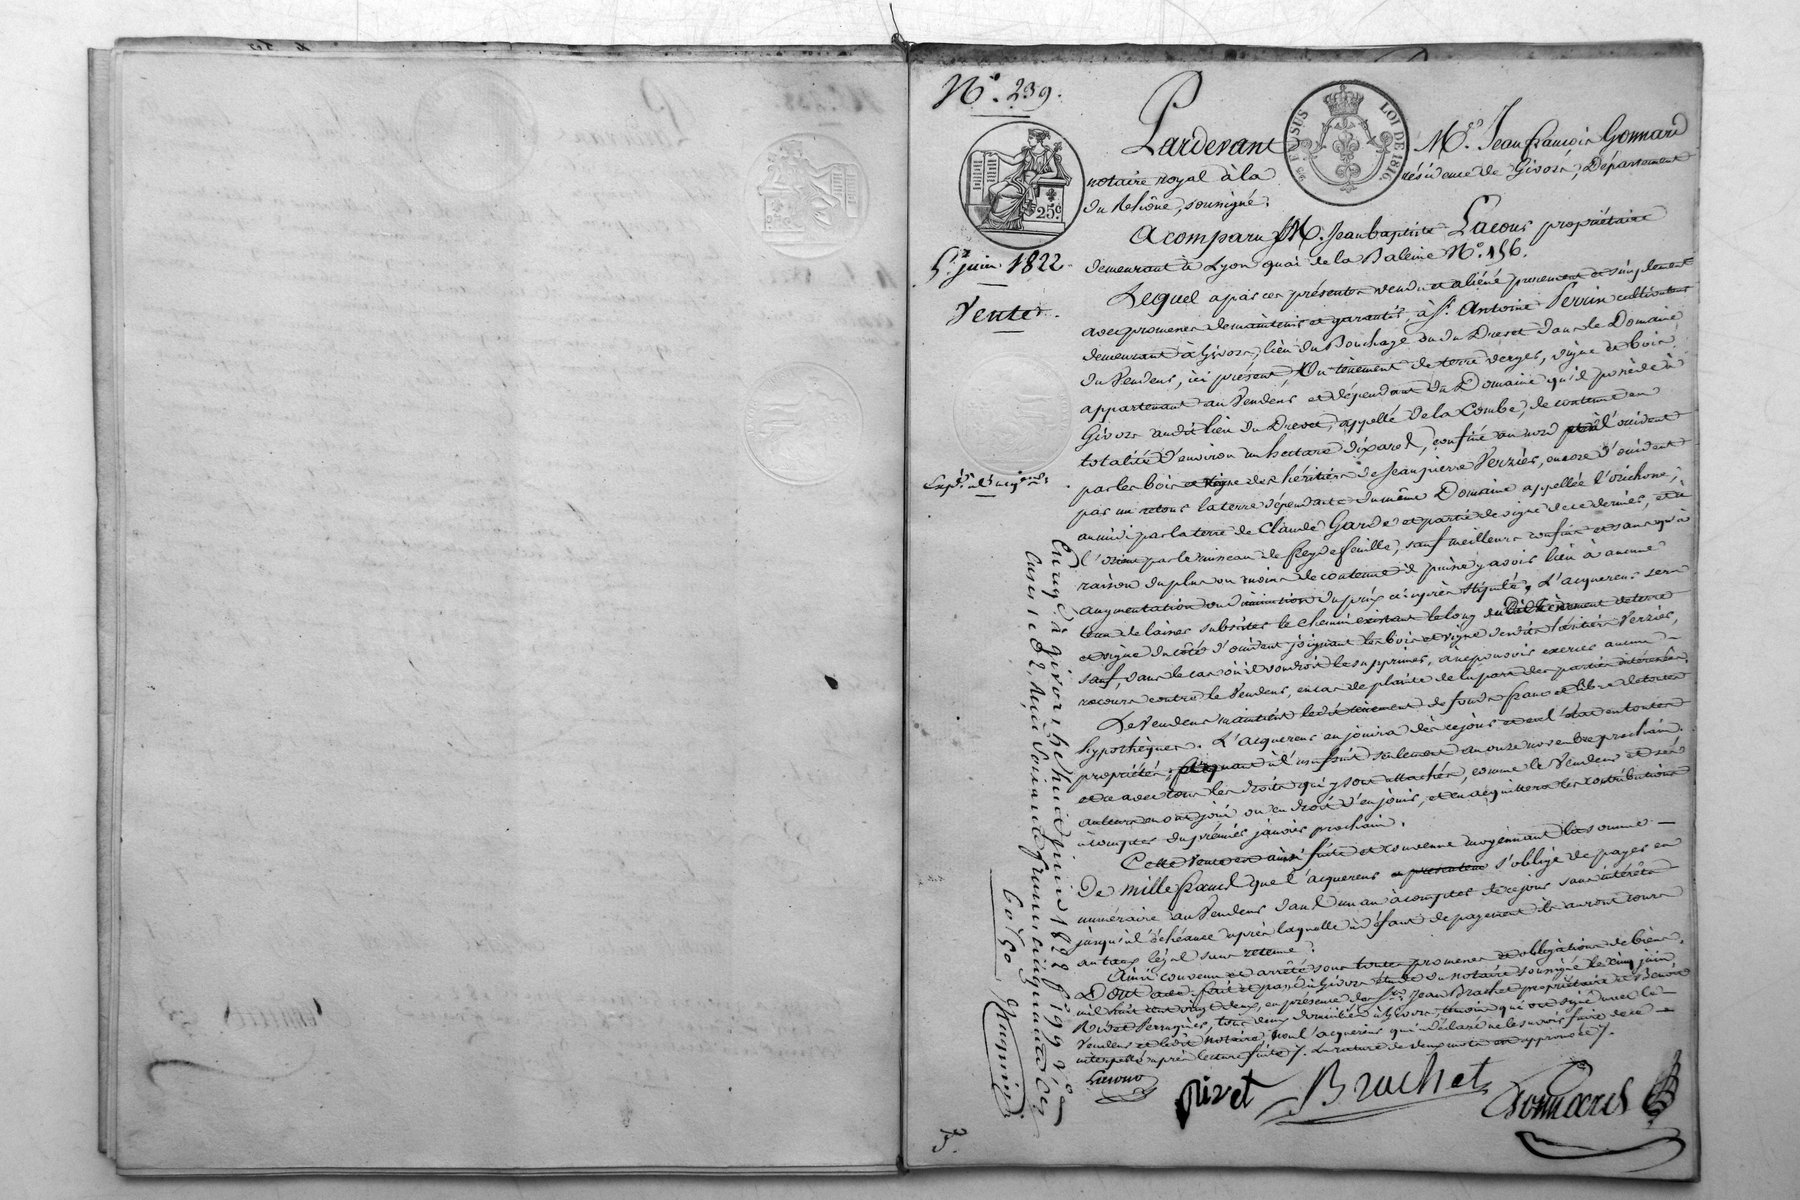 N.° 239.
5. juin 1822.
Vente.
Expéd.on à l'acquéreur.
EN SUS
LOI DE 1816.
25 c
Pardevant M.e Jean françois Gonnard
notaire royal à la résidence de Givors, Département
du Rhône, soussigné;
A comparu M. Jean baptiste Lacour propriétaire
demeurant à Lyon quai de la Baleine N.° 156.
Lequel a par ces présentes vendu et aliéné purement et simplement
avec promesse de maintenir et garantir, à S.r Antoine Perrin cultivateur
demeurant à Givors, lieu du Bouchage ou du Drevet dans le Domaine
du Vendeur, ici présent, Un tènement de terre verger, vigne et bois
appartenant au Vendeur et dépendant du Domaine qu'il possède à
Givors audit lieu du Drevet, appellé de la Combe, de contenue en
totalité d'environ un hectare dix ares, confiné au nord et à l'occident
par les bois et vigne des héritiers de Jean pierre Verzier, encore d'occident
par un retour la terre dépendante du même Domaine appellée
au midi par la terre de Claude Garde et partie de vigne de ce dernier, et à
l'orient par le ruisseau de , sauf meilleurs confins et sans qu'à
raison du plus ou moins de contenue il puisse y avoir lieu à aucune
augmentation ou diminution du prix ci-après stipulé. L'acquereur sera
tenu de laisser subsister le chemin existant le long du dit tènement de terre
et vigne du côté d'occident joignant les bois et vigne desdits héritiers Verzier,
sauf, dans le cas où il voudroit le supprimer, à ne pouvoir exercer aucun
recours contre le Vendeur, en cas de plainte de la part des parties intéressées.
Le Vendeur maintient ledit tènement de fonds franc et libre de toutes
hypothèques. L'acquereur en jouira dès ce jour et en l'état en toutes
propriétés, et quant à l'usufruit seulement au onze novembre prochain
et ce avec tous les droits qui y sont attachés, comme le Vendeur et ses
auteurs en ont joui ou eu droit d'en jouir, et en acquittera les contributions
à compter du premier janvier prochain.
Cette vente est ainsi faite et convenue moyennant la somme
De mille francs que l'acquereur s'oblige de payer en
numéraire au Vendeur dans un an à compter de ce jour sans intérêts
jusqu'à l'échéance après laquelle à défaut de payement ils auront cours
au taux légal sans retenue.
Ainsi convenu et arrêté sous toutes promesses et obligations de biens.
Dont acte. fait et passé à Givors étude du notaire soussigné le cinq juin
mil huit cent vingt deux, en présence des S.rs Jean Brachet propriétaire et
Rivet Perruquier, tous deux domiciliés à Givors, témoins qui ont signé avec le
Vendeur et ledit notaire, non l'acquereur qui a déclaré ne le savoir faire de ce
interpellé après lecture faite /. La rature de deux mots est approuvée /.
Lacour
Rivet
Brachet
Gonnard
Enreg.é à givors le huit juin 1822 f.° 199 v.°
Cases 1 et 2, Reçu Soixante francs cinquante Cen
60 f 50